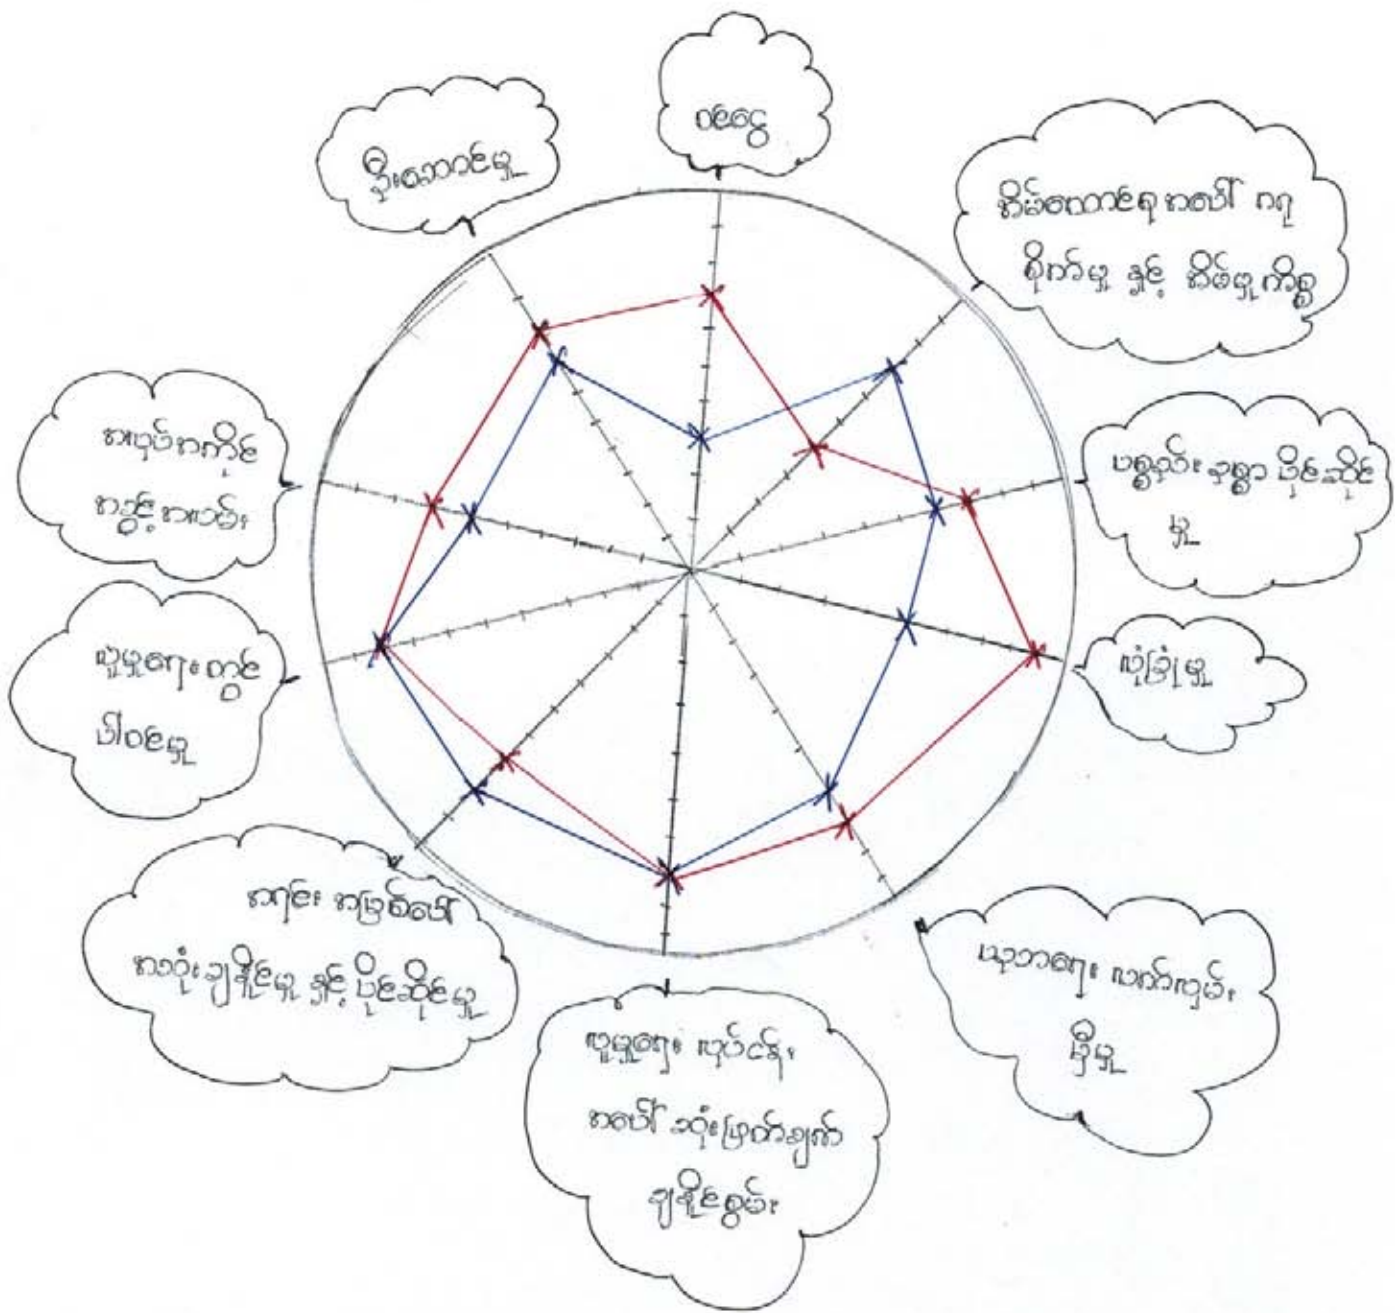 ဝင်ငွေ
အိမ်ထောင်ရေးအပေါ် ဂရု
စိုက်မှု နှင့် အိမ်မှုကိစ္စ
ပစ္စည်းဥစ္စာ ပိုင်ဆိုင်
မှု
လုံခြုံမှု
ပညာရေး လက်လှမ်း
မှီမှု
လူမှုရေး လုပ်ငန်း
အပေါ် ဆုံးဖြတ်ချက်
ချနိုင်စွမ်း
အရင်း အမြစ်ပေါ်
အသုံးချနိုင်မှု နှင့် ပိုင်ဆိုင်မှု
လူမှုရေးတွင်
ပါဝင်မှု
အလုပ်အကိုင်
အခွင့်အလမ်း
ဦးဆောင်မှု